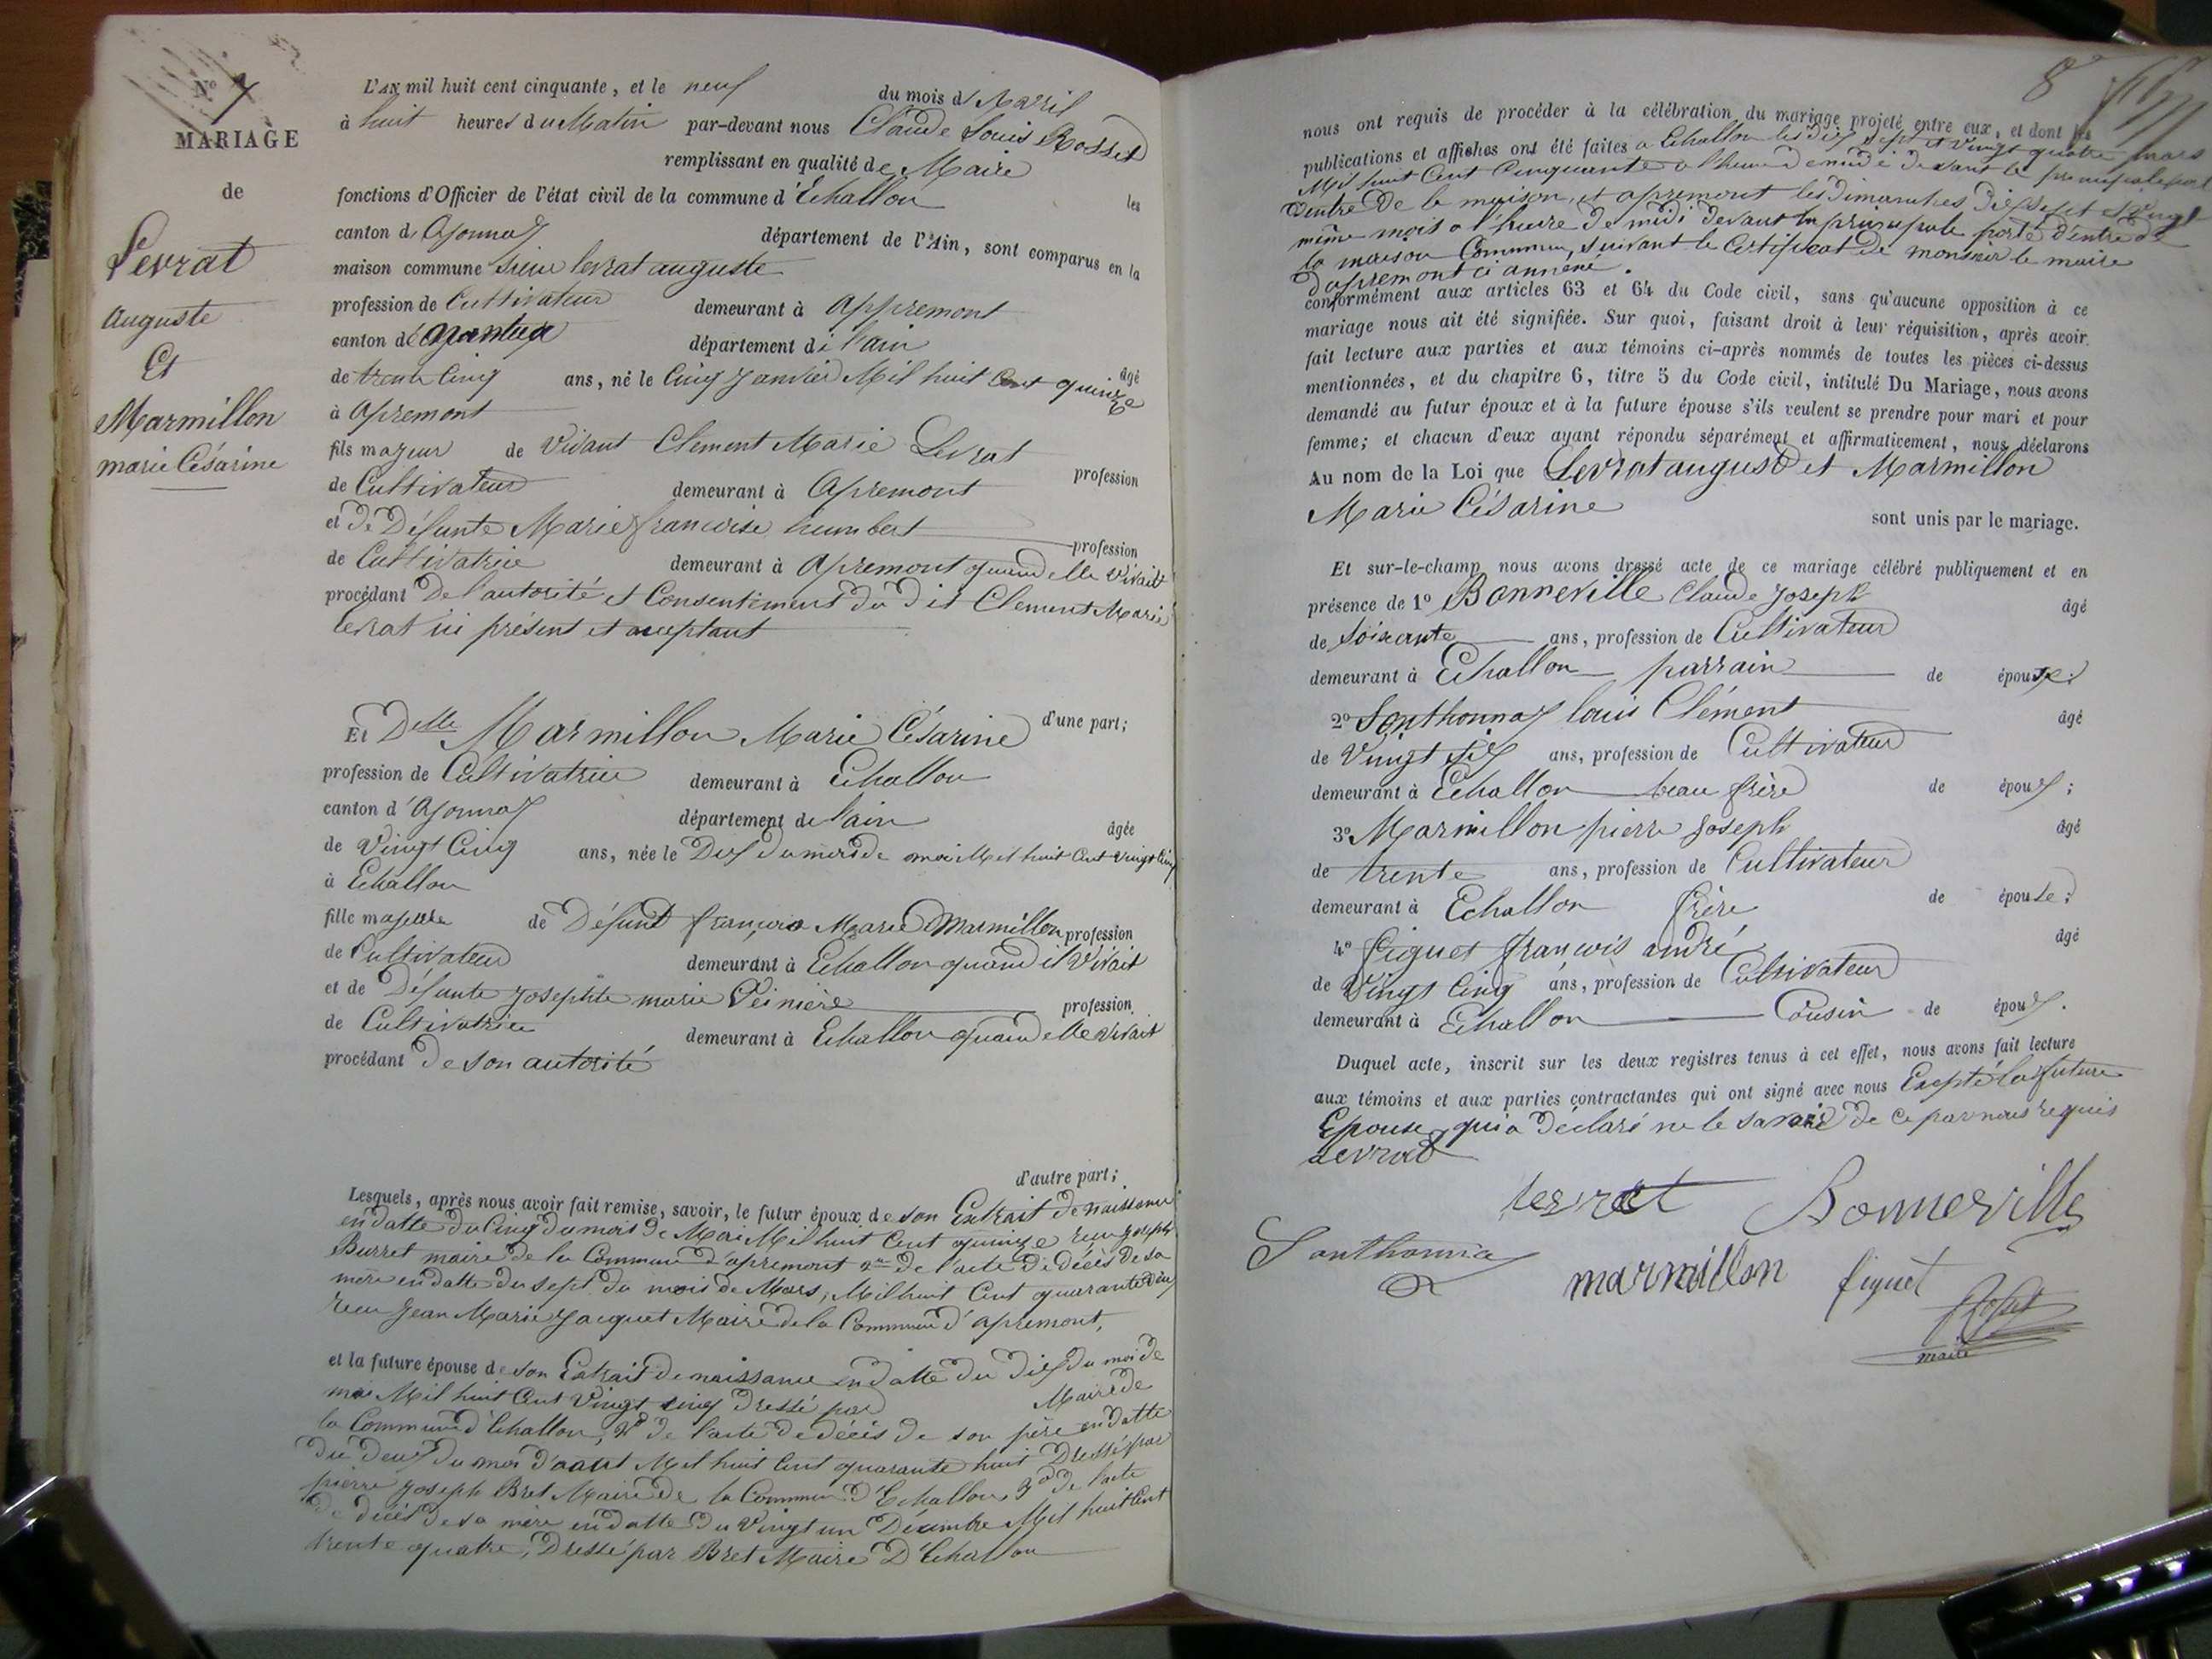 N° 7
MARIAGE
de
Levrat
auguste
Et
Marmillon
marie Césarine
L'AN mil huit cent cinquante, et le neuf du mois d'Avril
à huit heures du Matin par-devant nous Claude Louis Rosset
remplissant en qualité de Maire les
fonctions d'Officier de l'état civil de la commune d'Echallon
canton d'Oyonnax département de l'Ain, sont comparus en la
maison commune Sieur levrat auguste
profession de Cultivateur demeurant à Appremont
canton de Nantua département de l'ain âgé
de trente Cinq ans, né le Cinq Janvier Mil huit Cent quinze
à Apremont
fils majeur de Vivant Clement Marie Levrat profession
de Cultivateur demeurant à Apremont
et de Défunte Marie françoise humbert profession
de Cultivatrice demeurant à Apremont quand elle vivait
procédant De l'autorité et Consentement du dit Clement Marie
levrat ici présent et aceptant
d'une part;
Et Delle Marmillon Marie Césarine
profession de Cultivatrice demeurant à Echallon
canton d'Oyonnax département de l'ain âgée
de Vingt Cinq ans, née le Dix du mois de mai Mil huit Cent vingt Cinq
à Echallon
fille majeure de Défunt françois Marie Marmillon profession
de Cultivateur demeurant à Echallon quand il Vivait
et de Défunte Josephte marie Peinière profession
de Cultivatrice demeurant à Echallon quand elle vivait
procédant de son autorité
d'autre part;
Lesquels, après nous avoir fait remise, savoir, le futur époux de son Extrait de naissance
en datte du Cinq du mois de Mai Mil huit Cent quinze reçu Joseph
Burret maire de la Commune d'apremont 2me de l'acte de décès de sa
mère en datte du sept du mois de Mars, Mil huit Cent quarante deux
reçu Jean Marie Jacquet Maire de la Commune d'apremont,
et la future épouse de son Extrait de naissance en datte du dix du mois de
mai Mil huit Cent Vingt cinq dressé par Maire de
la Commune d'Echallon, 2° de l'acte de décès de son père en datte
du deux du mois d'aout Mil huit Cent quarante huit Dressé par
pierre Joseph Bret Maire de la Commune d'Echallon 3° de l'acte
de décès de sa mère en datte du Vingt un Décembre Mil huit Cent
trente quatre, Dressé par Bret Maire D'Echallon
8
nous ont requis de procéder à la célébration du mariage projeté entre eux, et dont les
publications et affiches ont été faites a Echallon les dix sept et Vingt quatre mars
Mil huit Cent Cinquante a l'heure de midi devant la principale porte
D'entrée de la maison, et apremont les dimanches dix sept et Vingt
même mois a l'heure de midi devant la principale porte d'entrée de
la maison Commune, suivant le Certificat de monsieur le maire
d'apremont ci annexé.
conformément aux articles 63 et 64 du Code civil, sans qu'aucune opposition à ce
mariage nous ait été signifiée. Sur quoi, faisant droit à leur réquisition, après avoir
fait lecture aux parties et aux témoins ci-après nommés de toutes les pièces ci-dessus
mentionnées, et du chapitre 6, titre 5 du Code civil, intitulé Du Mariage, nous avons
demandé au futur époux et à la future épouse s'ils veulent se prendre pour mari et pour
femme; et chacun d'eux ayant répondu séparément et affirmativement, nous déclarons
Au nom de la Loi que Levrat auguste et Marmillon
Marie Césarine
sont unis par le mariage.
Et sur-le-champ nous avons dressé acte de ce mariage célébré publiquement et en
présence de 1° Bonneville Claude Joseph âgé
de Soixante ans, profession de Cultivateur
demeurant à Echallon parrain de épouse;
2° Sonthonnax louis Clément âgé
de Vingt six ans, profession de Cultivateur
demeurant à Echallon beau frère de époux;
3° Marmillon pierre Joseph âgé
de trente ans, profession de Cultivateur
demeurant à Echallon frère de épouse;
4° figuet françois andré âgé
de Vingt Cinq ans, profession de Cultivateur
demeurant à Echallon Cousin de époux.
Duquel acte, inscrit sur les deux registres tenus à cet effet, nous avons fait lecture
aux témoins et aux parties contractantes qui ont signé avec nous Excepté la future
Epouse qui a déclaré ne le savoir de ce par nous requis
levrat
levrat Bonneville
Sonthonnax
marmillon figuet
Rosset
maire